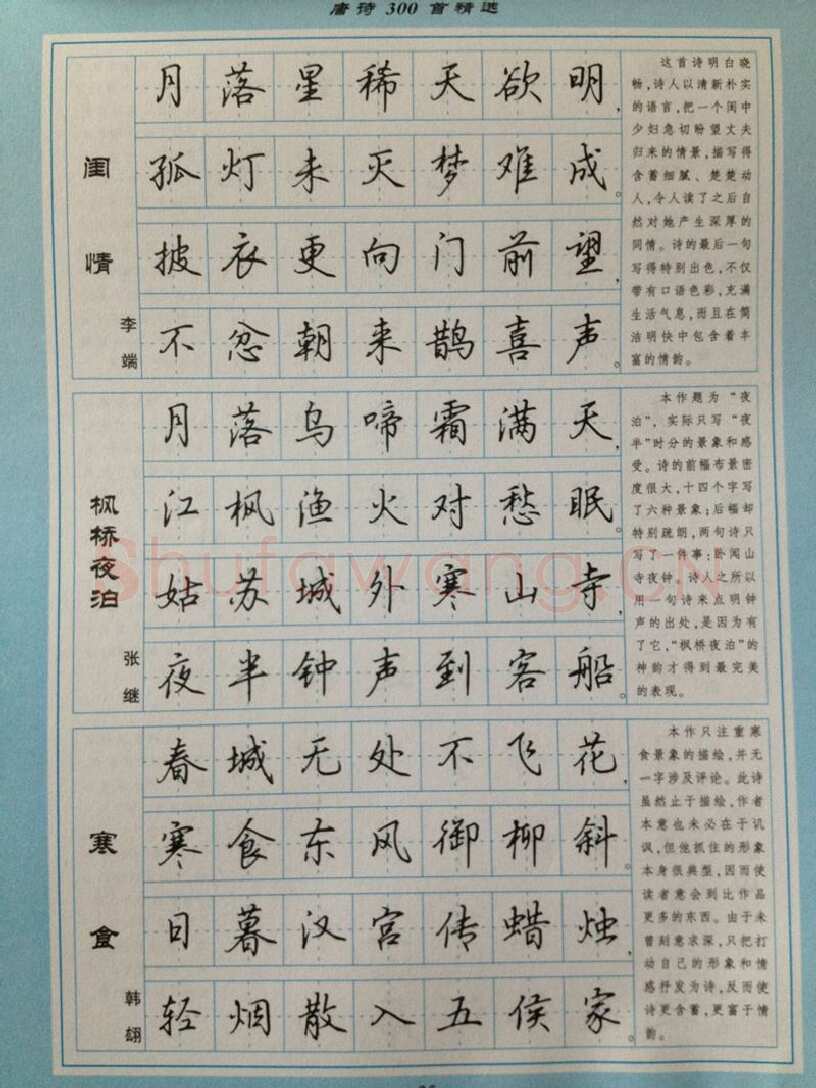 唐诗300首精选
闺情
李端
月落星稀天欲明，
孤灯未灭梦难成。
披衣更向门前望，
不忿朝来鹊喜声。
这首诗明白晓
畅，诗人以清新朴实
的语言，把一个闺中
少妇急切盼望丈夫
归来的情景，描写得
含蓄细腻、楚楚动
人，令人读了之后自
然对她产生深厚的
同情。诗的最后一句
写得特别出色，不仅
带有口语色彩，充满
生活气息，而且在简
洁明快中包含着丰
富的情韵。
枫桥夜泊
张继
月落乌啼霜满天，
江枫渔火对愁眠。
姑苏城外寒山寺，
夜半钟声到客船。
本作题为“夜
泊”，实际只写“夜
半”时分的景象和感
受。诗的前幅布景密
度很大，十四个字写
了六种景象；后幅却
特别疏朗，两句诗只
写了一件事：卧闻山
寺夜钟。诗人之所以
用一句诗来点明钟
声的出处，是因为有
了它，“枫桥夜泊”的
神韵才得到最完美
的表现。
寒食
韩翃
春城无处不飞花，
寒食东风御柳斜。
日暮汉宫传蜡烛，
轻烟散入五侯家。
本作只注重寒
食景象的描绘，并无
一字涉及评论。此诗
虽然止于描绘，作者
本意也未必在于讥
讽，但他抓住的形象
本身很典型，因而使
读者意会到比作品
更多的东西。由于未
曾刻意求深，只把打
动自己的形象和情
感抒发为诗，反而使
诗更含蓄，更富于情
韵。
Shufawang.CN